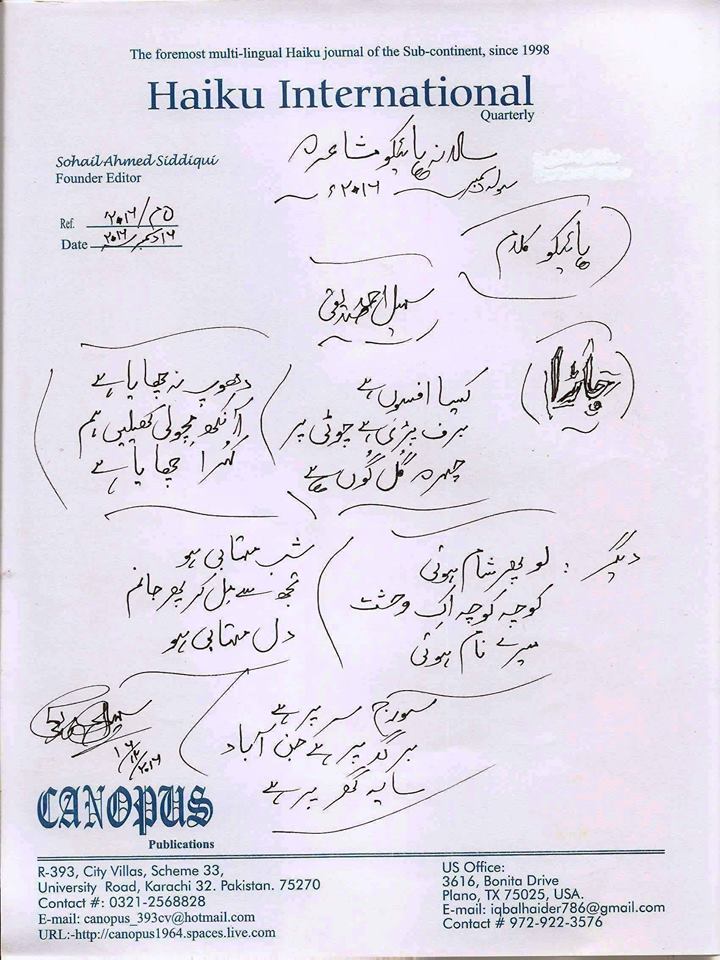 The foremost multi-lingual Haiku journal of the Sub-continent, since 1998
Haiku International
Quarterly
Sohail Ahmed Siddiqui
Founder Editor
سالانہ ہائیکو مشاعرہ
سولہ دسمبر ۲۰۱۶ء
Ref. ۲۰۱۶/۵م
Date ۱۶ دسمبر ۲۰۱۶
ہائیکو کلام
سہیل احمد صدیقی
جاڑا
کیسا افسوں ہے
برف پڑی ہے چوٹی پر
چہرہ گُل گُوں ہے
دھوپ نہ چھایا ہے
آنکھ مچولی کھیلیں ہم
کُہرا چھایا ہے
دیگر :
لو پھر شام ہوئی
کوچہ کوچہ اِک وحشت
میرے نام ہوئی
شب مہتابی ہو
تجھ سے مل کر پھر جانم
دل مہتابی ہو
سورج سر پر ہے
برگد پر ہے جن آباد
سایہ گھر پر ہے
سہیل احمد صدیقی
۱۶/۱۲/۲۰۱۶
CANOPUS
Publications
R-393, City Villas, Scheme 33,
University Road, Karachi 32. Pakistan. 75270
Contact #: 0321-2568828
E-mail: canopus_393cv@hotmail.com
URL:-http://canopus1964.spaces.live.com
US Office:
3616, Bonita Drive
Plano, TX 75025, USA.
E-mail: iqbalhaider786@gmail.com
Contact # 972-922-3576